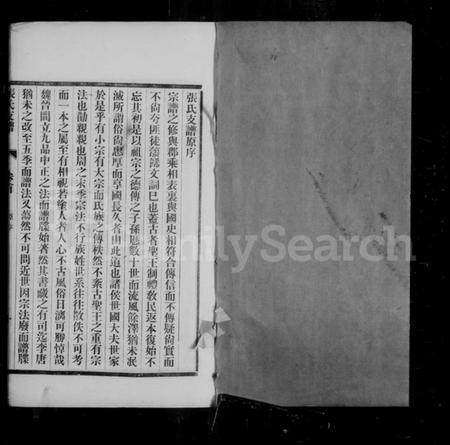 張氏支譜原序
宗譜之修與郡乘相表裏與國史相符合傳信而不傳疑尚實而
不尚夸匪徒
文詞已也蓋古者聖王制禮教民返本復始不
忘其初是以祖宗之德傳之子孫
數十世而流風餘澤猶未泯
滅所謂俗尚
厚而享國長久者由此道也諸侯世國大夫世家
於是乎有小宗有大宗而氏族之傳秩然不紊古聖王之重有宗
法也
親親也周之末季宗法不行族姓世系往往散佚不可考
而一本之屬至有相視若塗人者人心不古風俗日漓可勝悼哉
魏晉間立九品中正之法而譜牒始著然其書藏之有司迄李唐
猶未之改至五季而譜法又蕩然不可問近世因宗法廢而譜牒
張氏支譜
卷首
FamilySearch